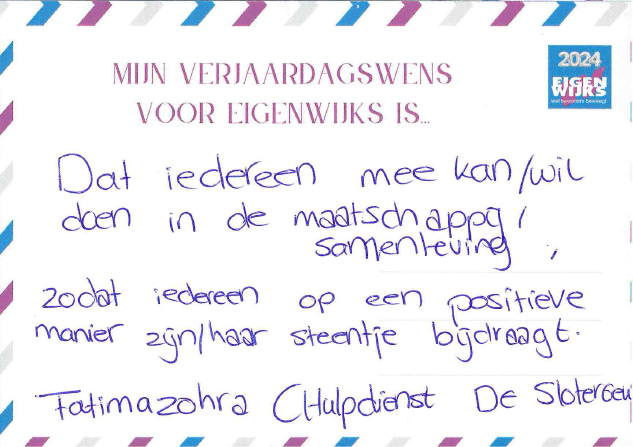 MIJN VERJAARDAGSWENS
VOOR EIGENWIJKS IS...
2024
EIGEN
WIJKS
Dat iedereen mee kan/wil
doen in de maatschappij/
samenleving,
zodat iedereen op een positieve
manier zijn/haar steentje bijdraagt.
Fatimazohra (Hulpdienst De